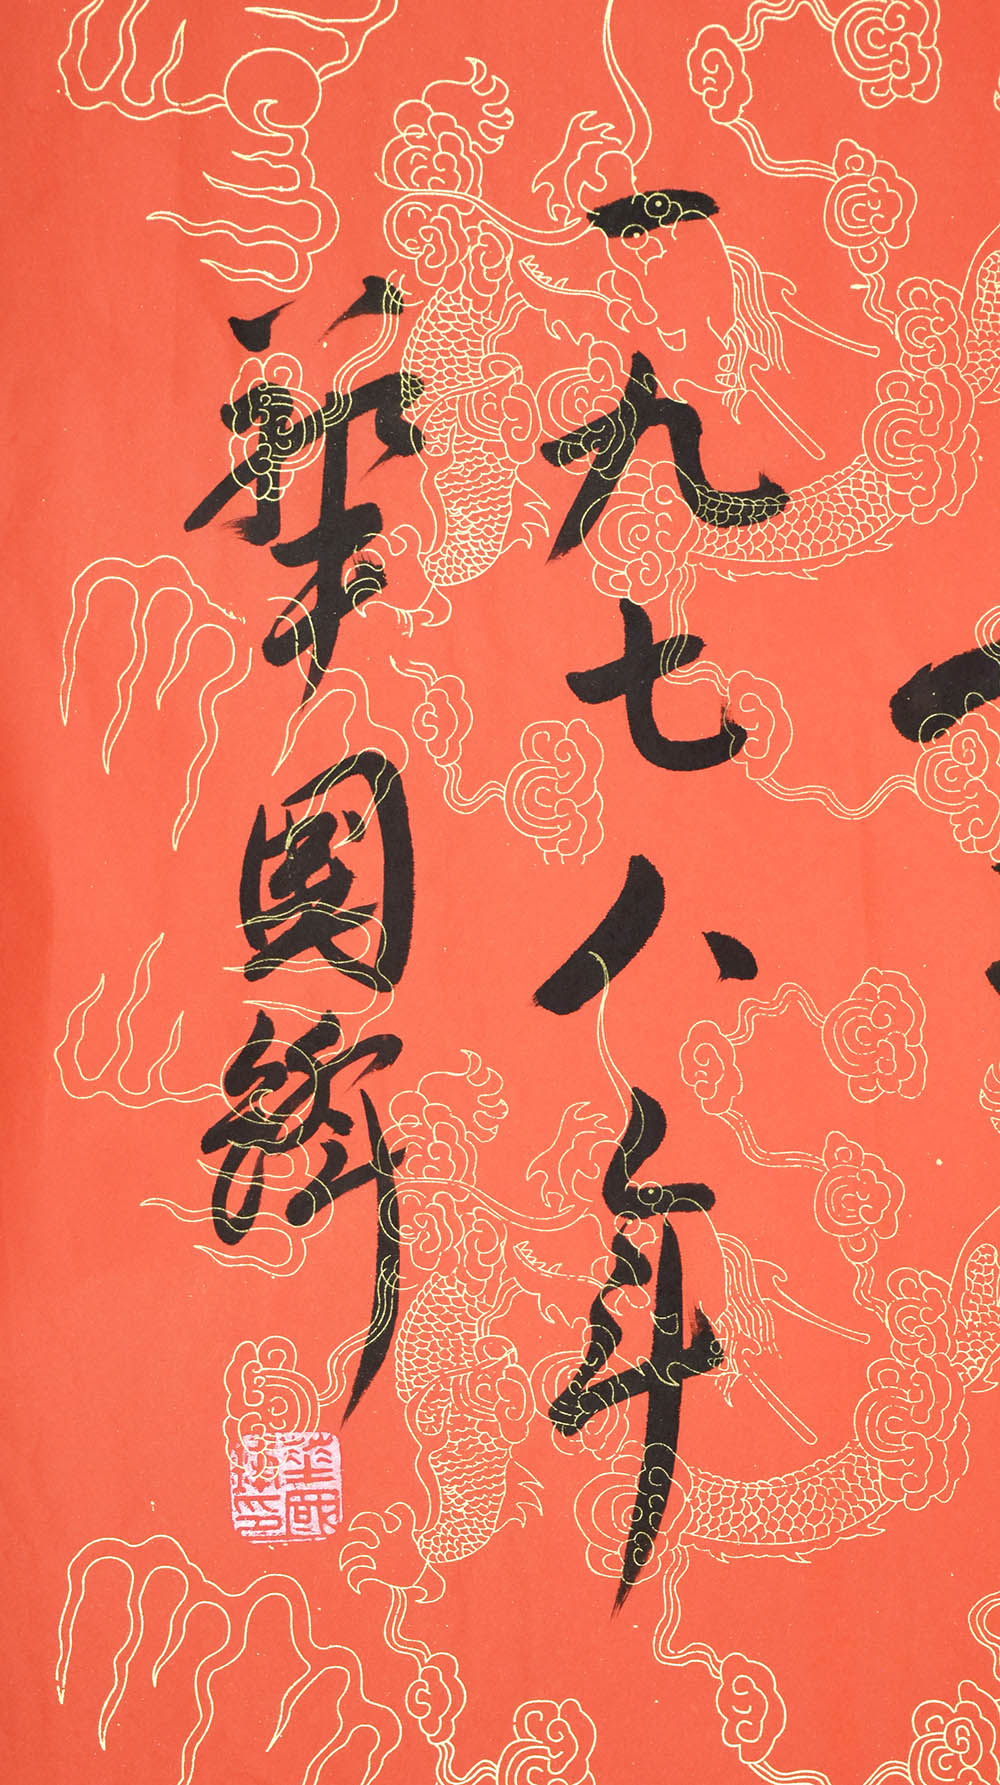 一九七八年
華國鋒